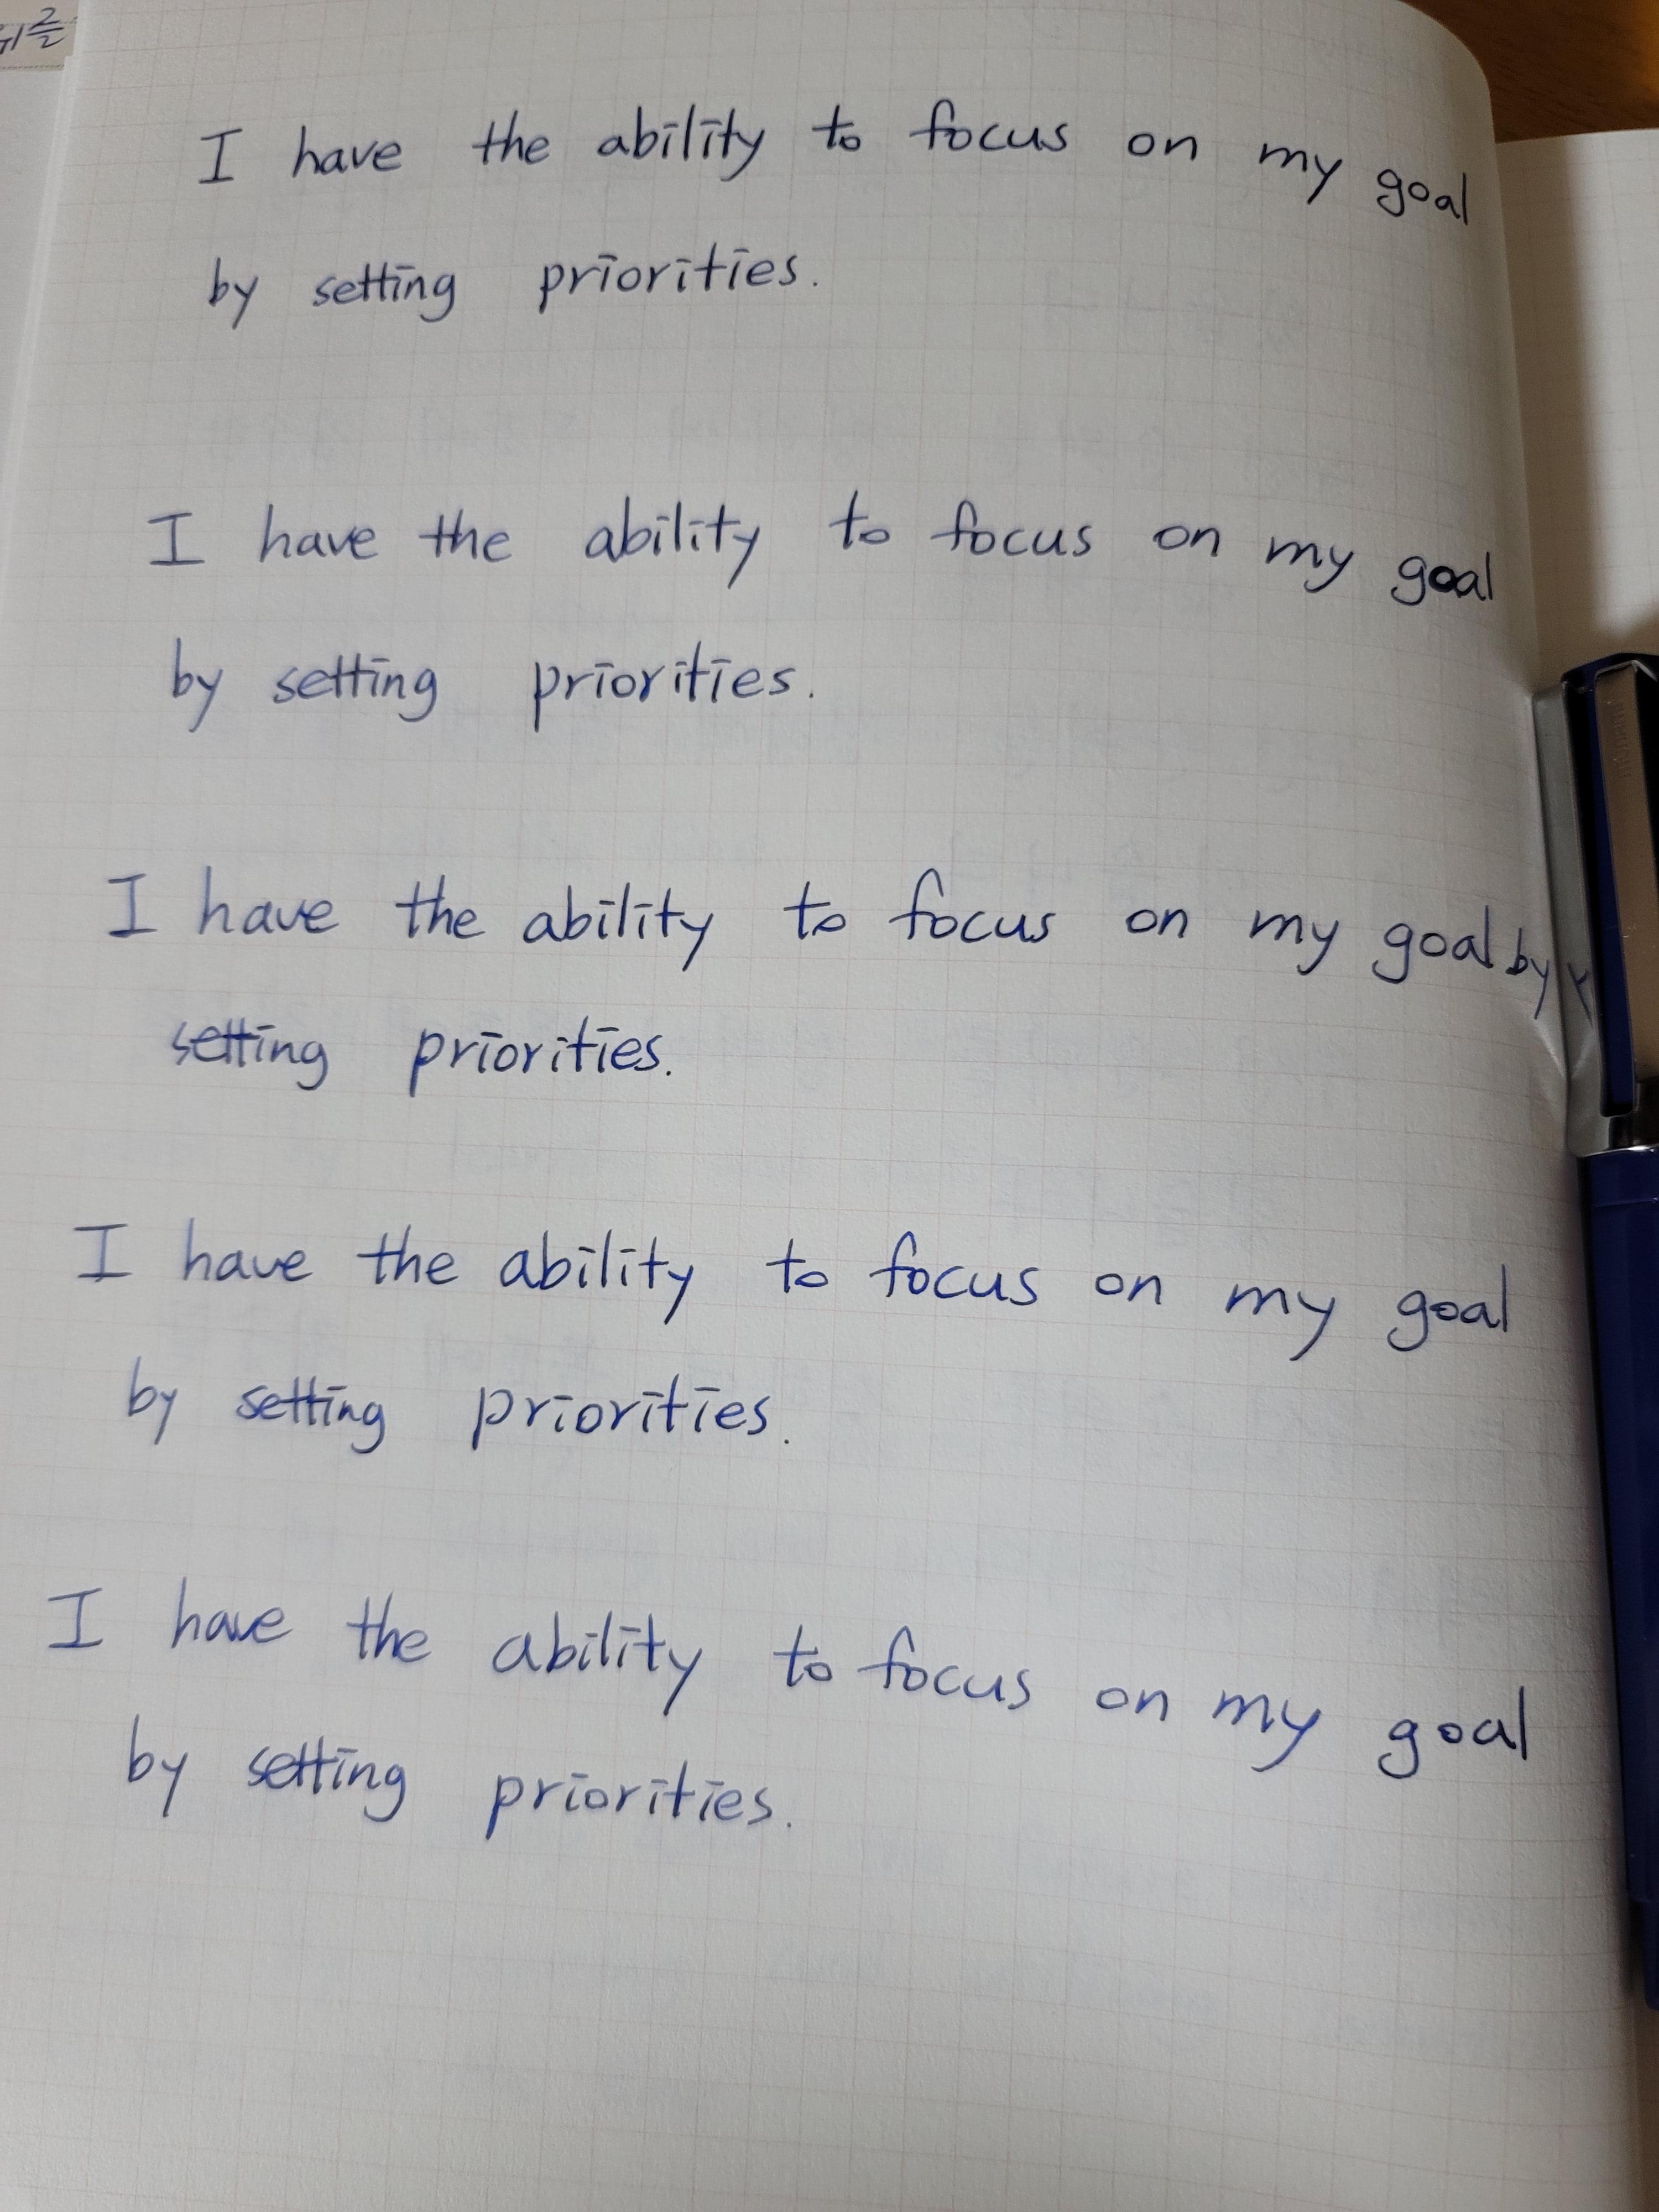 I have the ability to focus on my goal
by setting priorities.
I have the ability to focus on my goal
by setting priorities.
I have the ability to focus on my goal by
setting priorities.
I have the ability to focus on my goal
by setting priorities.
I have the ability to focus on my goal
by setting priorities.